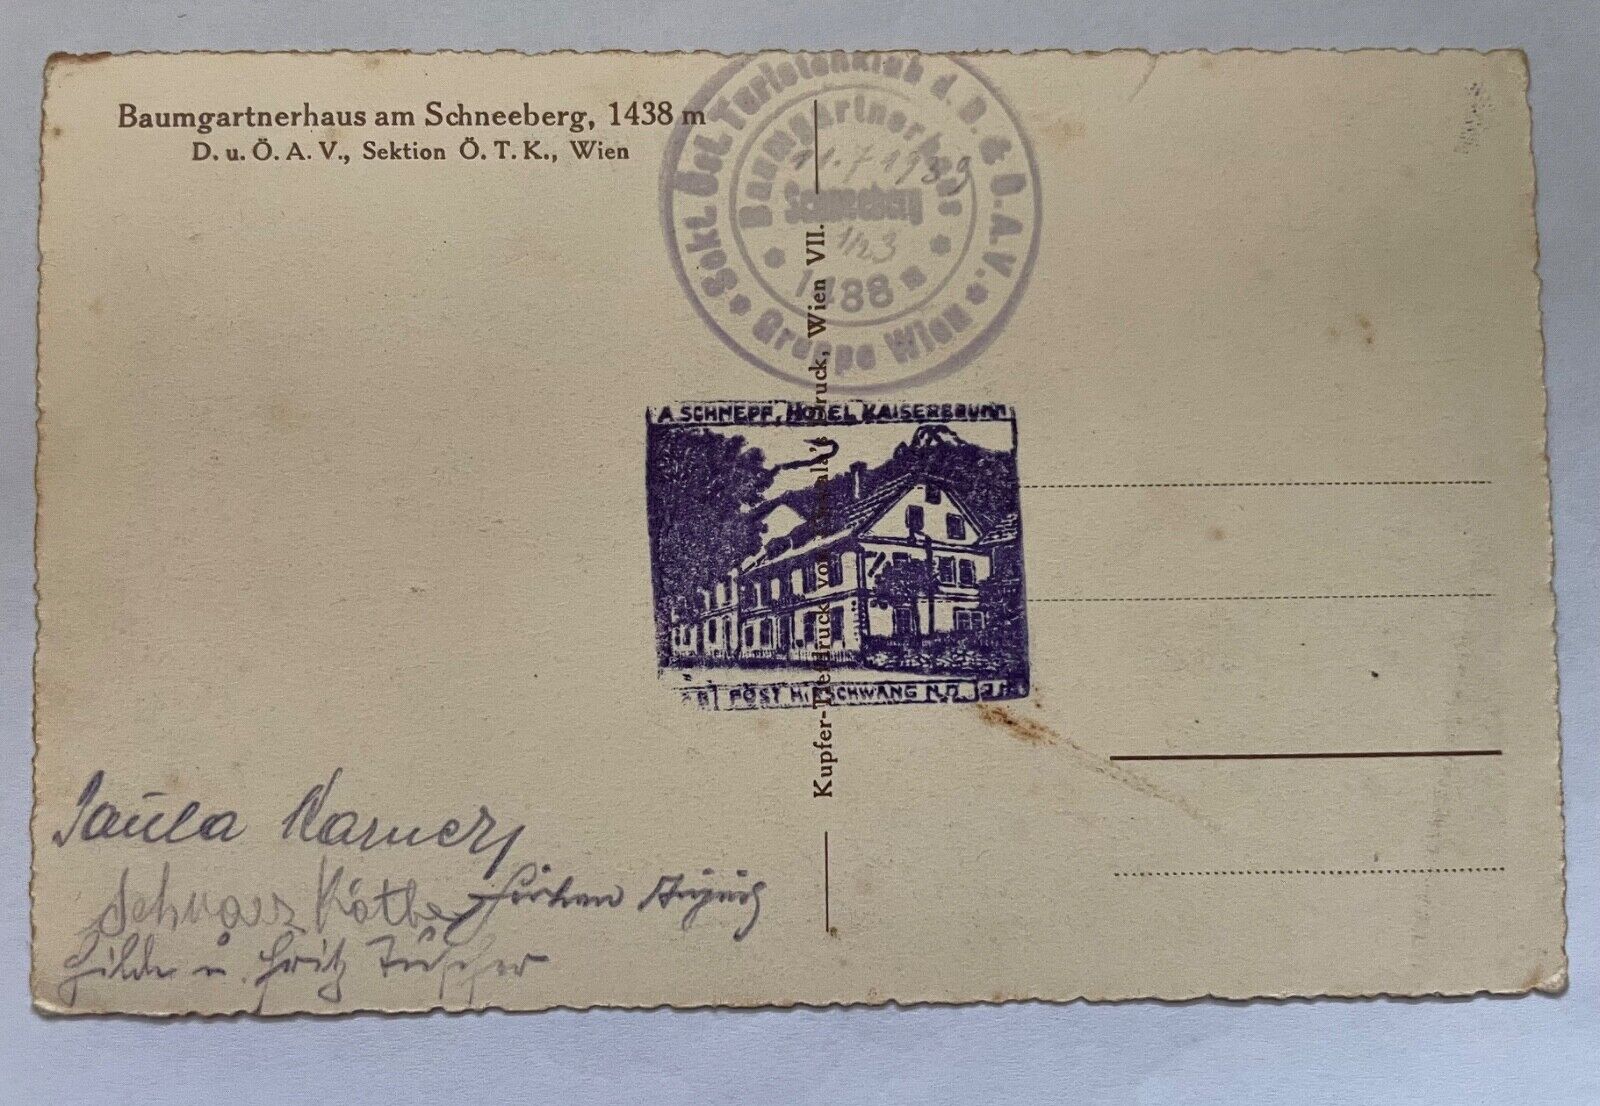 Baumgartnerhaus am Schneeberg, 1438 m
D. u. Ö. A. V., Sektion Ö. T. K., Wien
Sekt. Öst. Turistenklub d. D. & Ö. A. V.
Gruppe Wien
Baumgartnerhaus
11.7.1939
Schneeberg
1438 m
A SCHNEPF, HOTEL KAISERBRUNN
POST HIRSCHWANG N.Ö.
Kupfer-Tiefdruck von Druck, Wien VII.
Paula Karner
Schwarz Käthe
Hilde u. Fritz